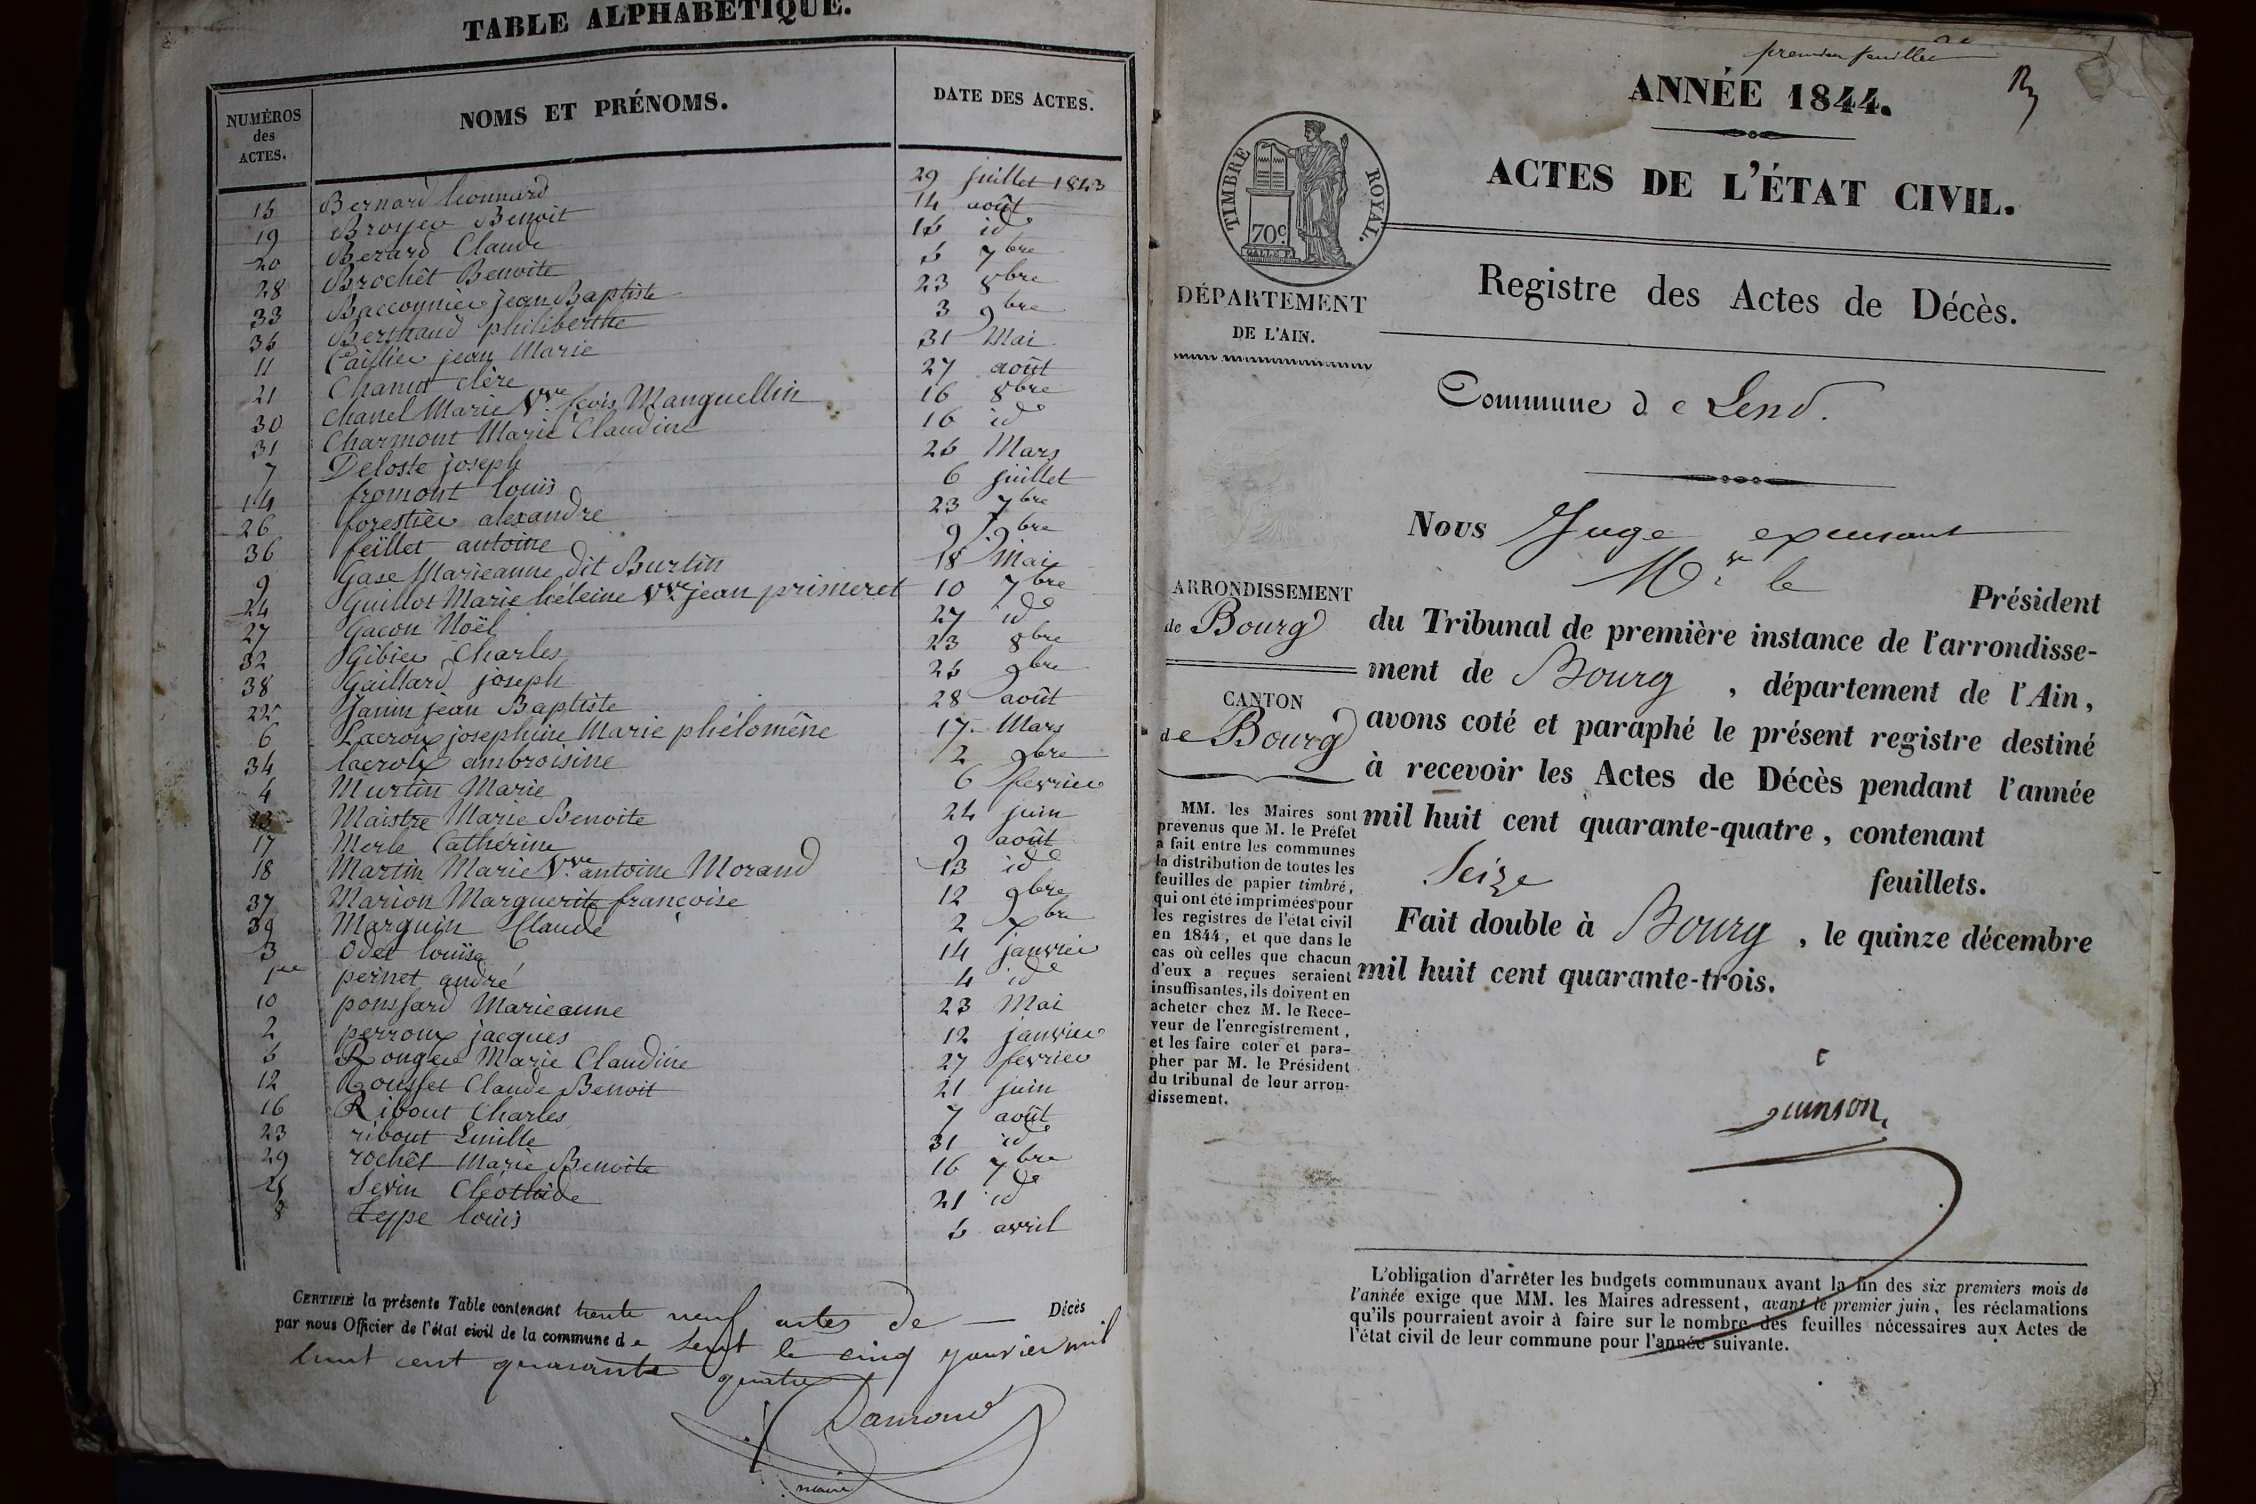 TABLE ALPHABÉTIQUE.
NUMÉROS des ACTES. NOMS ET PRÉNOMS. DATE DES ACTES.
15 Bernard leonnard 29 juillet 1843
19 Broyer Benoit 14 août
20 Berard Claude 15 id
28 Brochêt Benoite 5 7bre
33 Bacconnier jean Baptiste 23 8bre
35 Berthaud philiberthe 3 9bre
11 Caillier jean Marie 31 Mai
21 Chanut clère 27 août
30 Chanel Marie Vve fcois Manguellin 16 8bre
31 Charmont Marie Claudine 16 id
7 Deloste joseph 25 Mars
14 fromont louis 6 juillet
26 forestier alexandre 23 7bre
36 feillet antoine 9 9bre
9 Gase Marieanne dit Burtin 18 Mai
24 Guillot Marie héleine Vve jean primeret 10 7bre
27 Gacon Noël 27 id
32 Gibier Charles 23 8bre
38 Gaillard joseph 25 9bre
22 Janin jean Baptiste 28 août
6 Lacroix josephine Marie phélomène 17 Mars
34 lacroix ambroisine 2 9bre
4 Murtin Marie 6 fevrier
13 Maistre Marie Benoite 24 juin
17 Merle Cathérine 9 août
18 Martin Marie Vve antoine Morand 13 id
37 Marion Marguerite françoise 12 9bre
39 Marguin Claude 2 Xbre
3 Odet louise 14 janvier
1re pernet andré 4 id
10 ponsard Marieanne 23 Mai
2 perroux jacques 12 janvier
5 Rouger Marie Claudine 27 fevrier
12 Rousset Claude Benoit 21 juin
16 Ribout Charles 7 août
23 ribout Emilte 31 id
29 rochêt Marie Benoite 16 7bre
25 Sevin Cléothide 21 id
8 Teppe louis 5 avril
CERTIFIÉ la présente Table contenant trente neuf actes de Décès
par nous Officier de l'état civil de la commune de Lent le cinq janvier mil
huit cent quarante quatre
Damond
maire
premier feuillet
ANNÉE 1844.
ACTES DE L'ÉTAT CIVIL.
TIMBRE ROYAL.
70c.
DÉPARTEMENT
DE L'AIN.
Registre des Actes de Décès.
Commune de Lend.
ARRONDISSEMENT
de Bourg
CANTON
de Bourg
MM. les Maires sont
prévenus que M. le Préfet
a fait entre les communes
la distribution de toutes les
feuilles de papier timbré,
qui ont été imprimées pour
les registres de l'état civil
en 1844, et que dans le
cas où celles que chacun
d'eux a reçues seraient
insuffisantes, ils doivent en
acheter chez M. le Rece-
veur de l'enregistrement,
et les faire coter et para-
pher par M. le Président
du tribunal de leur arron-
dissement.
Nous Juge excusant
Mr le Président
du Tribunal de première instance de l'arrondisse-
ment de Bourg, département de l'Ain,
avons coté et paraphé le présent registre destiné
à recevoir les Actes de Décès pendant l'année
mil huit cent quarante-quatre, contenant
Seize feuillets.
Fait double à Bourg, le quinze décembre
mil huit cent quarante-trois.
quinson
L'obligation d'arrêter les budgets communaux avant la fin des six premiers mois de
l'année exige que MM. les Maires adressent, avant le premier juin, les réclamations
qu'ils pourraient avoir à faire sur le nombre des feuilles nécessaires aux Actes de
l'état civil de leur commune pour l'année suivante.